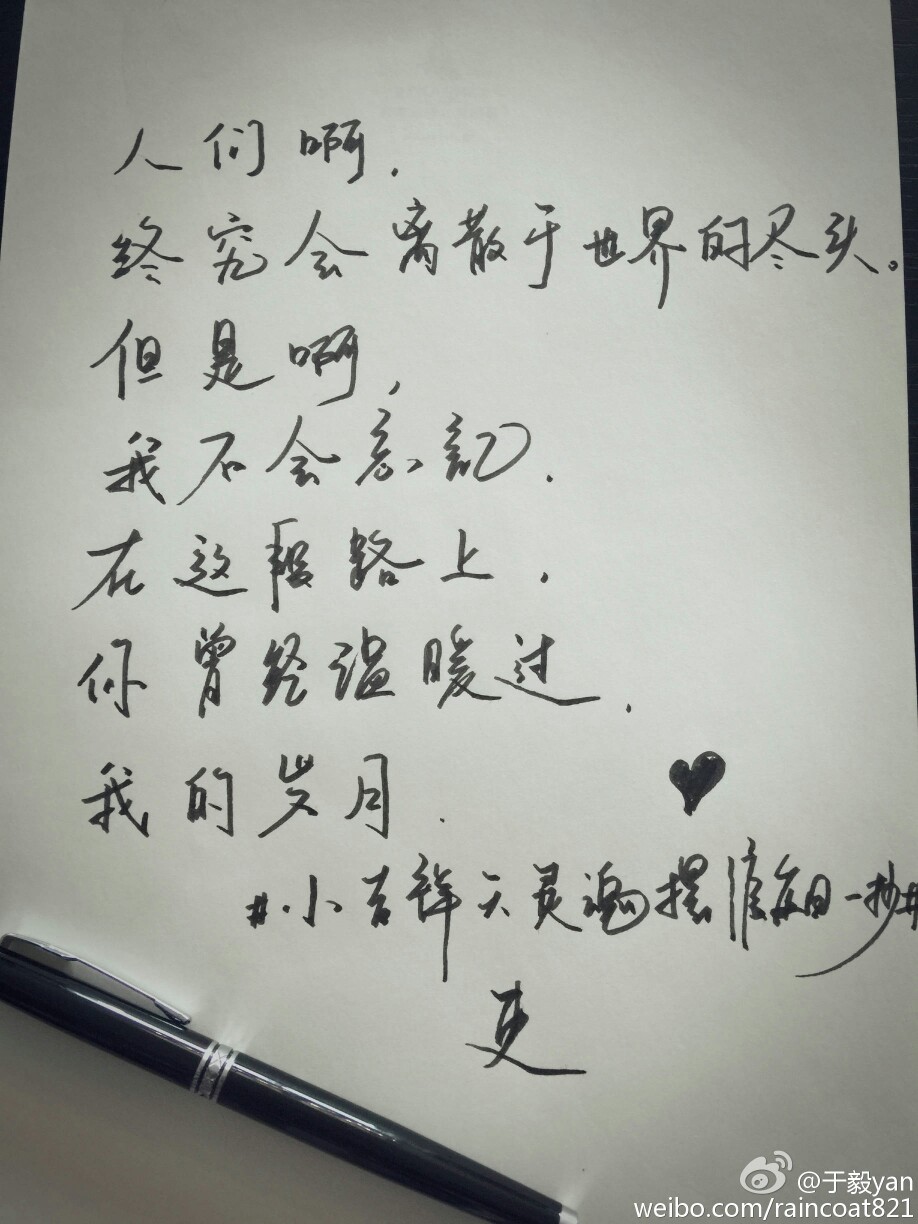 人们啊,
终究会离散于世界的尽头。
但是啊,
我不会忘记.
在这段路上,
你曾经温暖过.
我的岁月.
#小吉祥天灵魂摆渡每日一抄#
@于毅yan
weibo.com/raincoat821